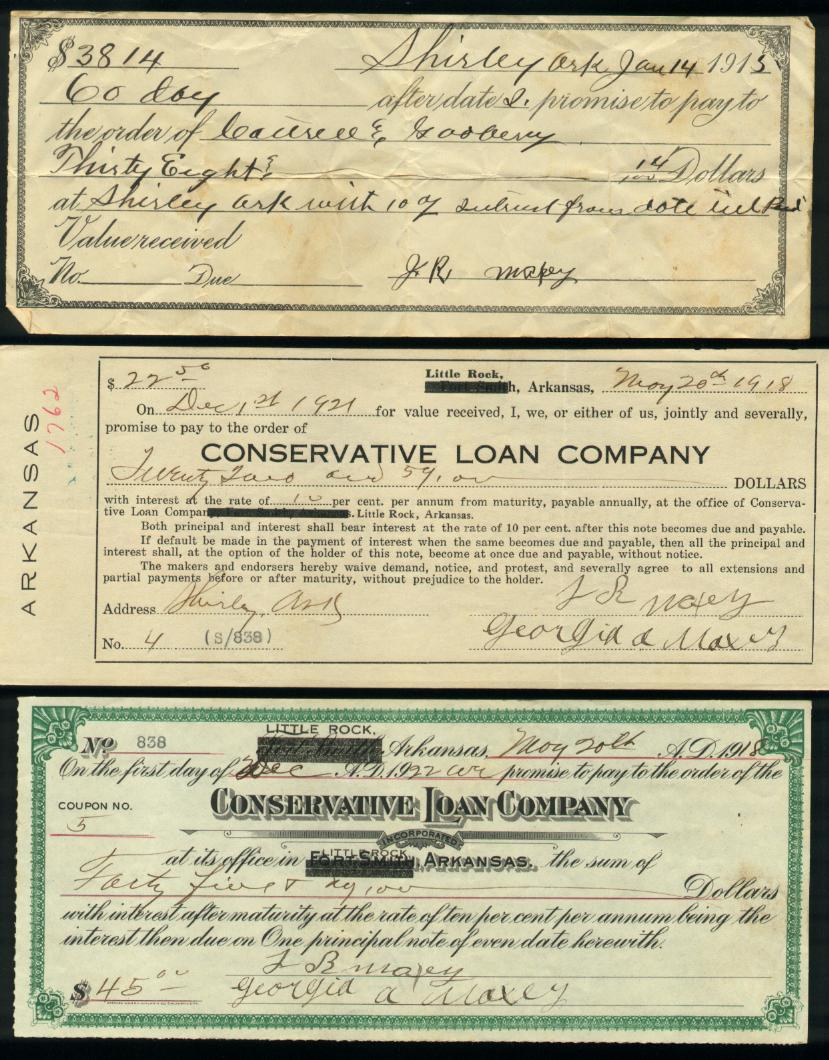 $38 14 Shirley Ark Jan 14 1915
60 day after date I promise to pay to
the order of & Gooberry
Thirty Eight & 14/100 Dollars
at Shirley Ark with 10 % from date till
Value received
No. Due J R Maxey
ARKANSAS
1762
$ 22 50 Little Rock, Arkansas, May 20th 1918
On Dec 1st 1921 for value received, I, we, or either of us, jointly and severally,
promise to pay to the order of
CONSERVATIVE LOAN COMPANY
Twenty Two and DOLLARS
with interest at the rate of 10 per cent. per annum from maturity, payable annually, at the office of Conserva-
tive Loan Company, Little Rock, Arkansas.
Both principal and interest shall bear interest at the rate of 10 per cent. after this note becomes due and payable.
If default be made in the payment of interest when the same becomes due and payable, then all the principal and
interest shall, at the option of the holder of this note, become at once due and payable, without notice.
The makers and endorsers hereby waive demand, notice, and protest, and severally agree to all extensions and
partial payments before or after maturity, without prejudice to the holder.
Address Shirley, Ark J R Maxey
No. 4 (S/838) Georgia a Maxey
LITTLE ROCK,
No 838 Arkansas, May 20th A.D. 1918
On the first day of Dec A.D. 1922 we promise to pay to the order of the
COUPON NO. CONSERVATIVE LOAN COMPANY
5 INCORPORATED
LITTLE ROCK
at its office in FORT SMITH, ARKANSAS. the sum of
Forty five & Dollars
with interest after maturity at the rate of ten per cent per annum being the
interest then due on One principal note of even date herewith.
J R Maxey
$ 45 00 Georgia a Maxey